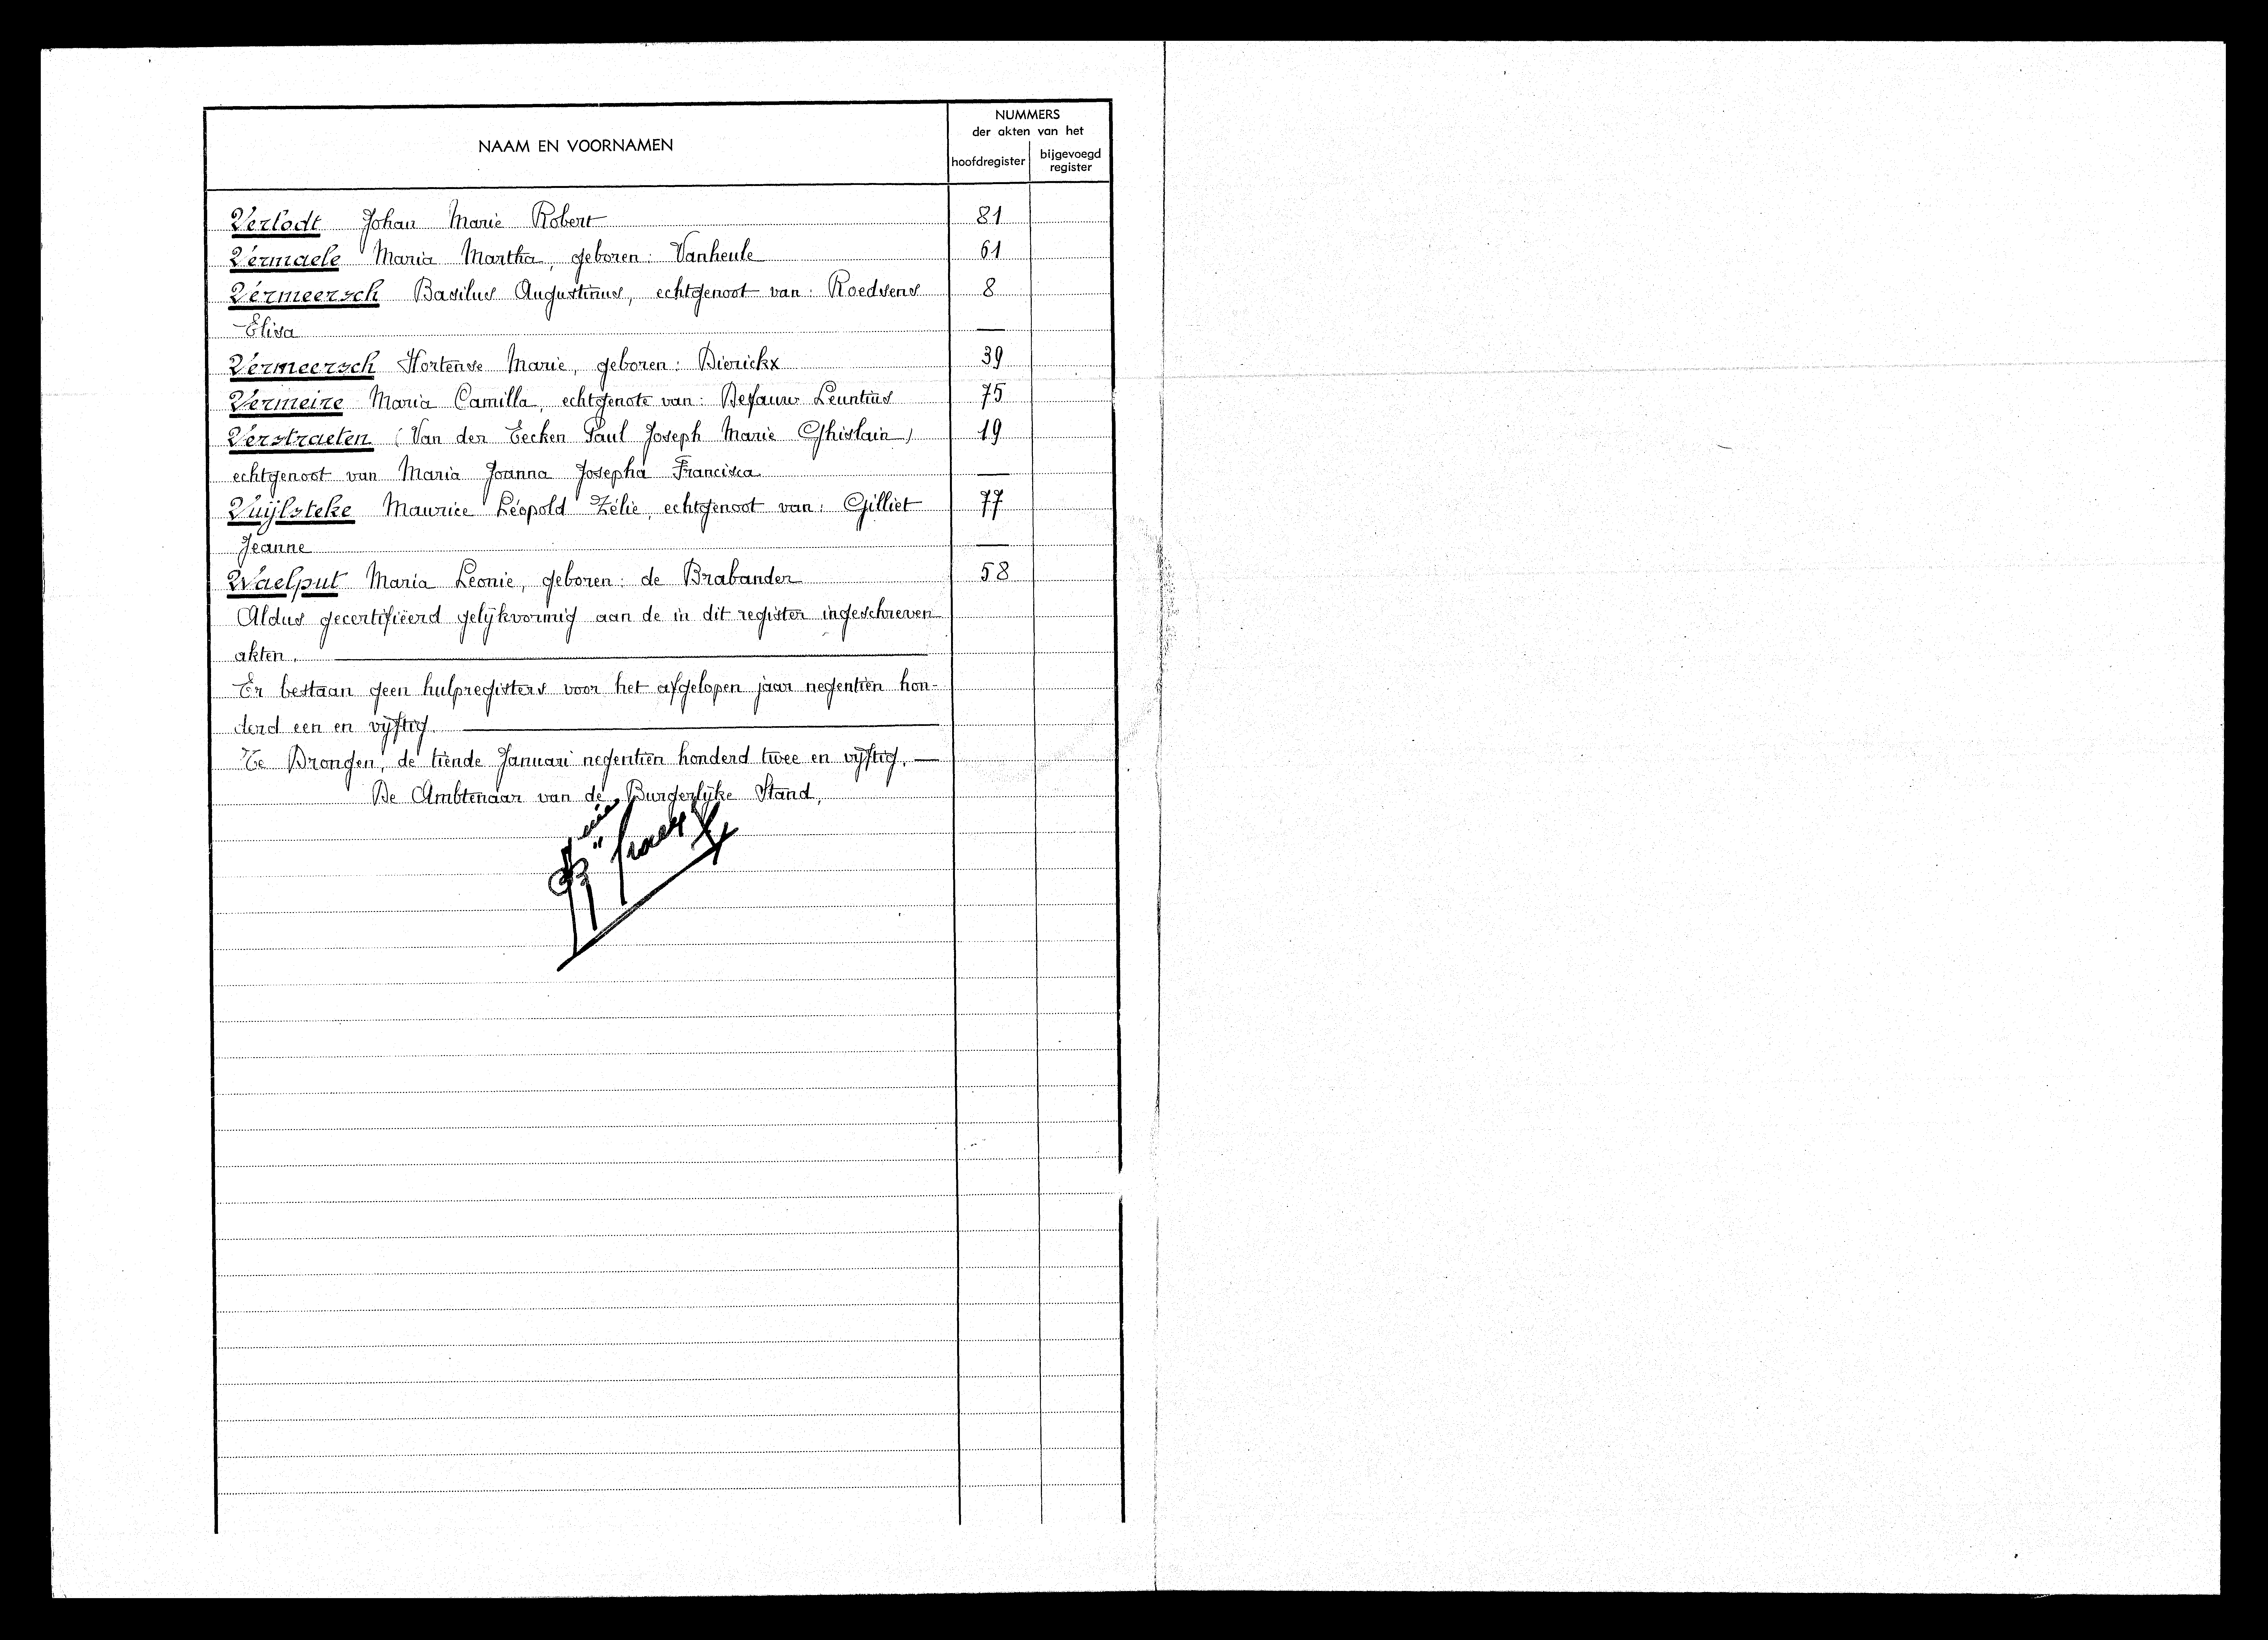 NAAM EN VOORNAMEN
NUMMERS
der akten van het
hoofdregister
bijgevoegd
register
Verlodt Johan Marie Robert 81
Vermaele Maria Martha, geboren: Vanheule 61
Vermeersch Basilus Augustinus, echtgenoot van: Roedsens 8
Elisa —
Vermeersch Hortense Marie, geboren: Dierickx 39
Vermeire Maria Camilla, echtgenote van: Defauw Leuntius 75
Verstraeten (Van der Eecken Paul Joseph Marie Ghislain) 19
echtgenoot van Maria Joanna Josepha Francisca —
Vuijlsteke Maurice Léopold Zélie, echtgenoot van: Gilliet 77
Jeanne —
Waelput Maria Leonie, geboren: de Brabander 58
Aldus gecertifiëerd gelijkvormig aan de in dit register ingeschreven
akten.
Er bestaan geen hulpregisters voor het afgelopen jaar negentien hon-
derd een en vijftig.
Te Drongen, de tiende Januari negentien honderd twee en vijftig. —
De Ambtenaar van de Burgerlijke Stand,